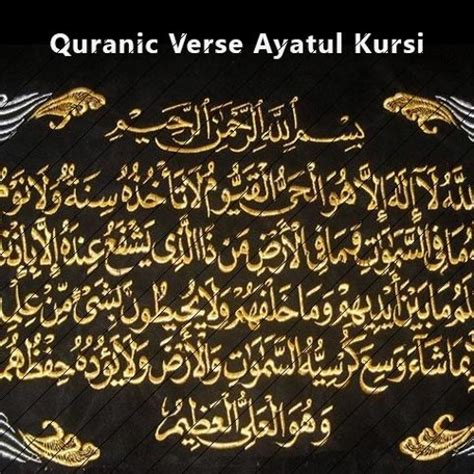 Quranic Verse Ayatul Kursi
بِسْمِ اللَّهِ الرَّحْمَنِ الرَّحِيمِ
للَّهُ لَا إِلَهَ إِلَّا هُوَ الْحَيُّ الْقَيُّومُ لَا تَأْخُذُهُ سِنَةٌ وَلَا نَوْمٌ
مَا فِي السَّمَوَتِ وَمَا فِي الْأَرْضِ مَن ذَا الَّذِي يَشْفَعُ عِندَهُ إِلَّا بِإِذْنِ
لَمُ مَا بَيْنَ أَيْدِيهِمْ وَمَا خَلْفَهُمْ وَلَا يُحِيطُونَ بِشَيْءٍ مِّنْ عِلْمِ
بِمَا شَاءَ وَسِعَ كُرْسِيُّهُ السَّمَوَتِ وَالْأَرْضَ وَلَا يَؤُدُهُ حِفْظُهُمَ
وَهُوَ الْعَلِيُّ الْعَظِيمُ